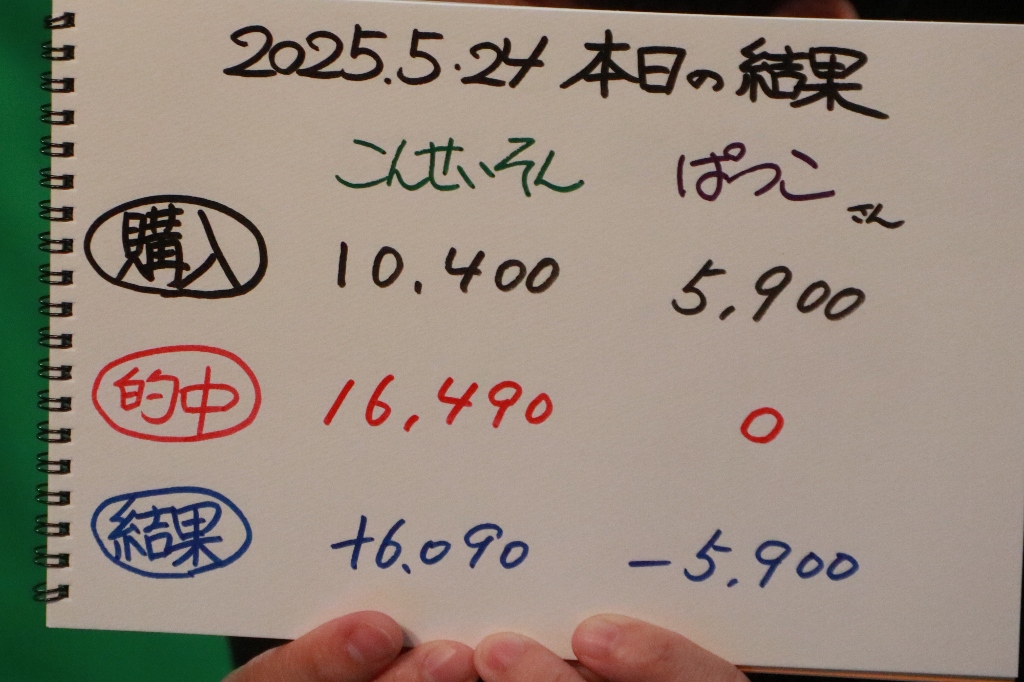 2025.5.24 本日の結果
こんせいそん ぱつこさん
購入 10,400 5,900
的中 16,490 0
結果 +6,090 -5,900